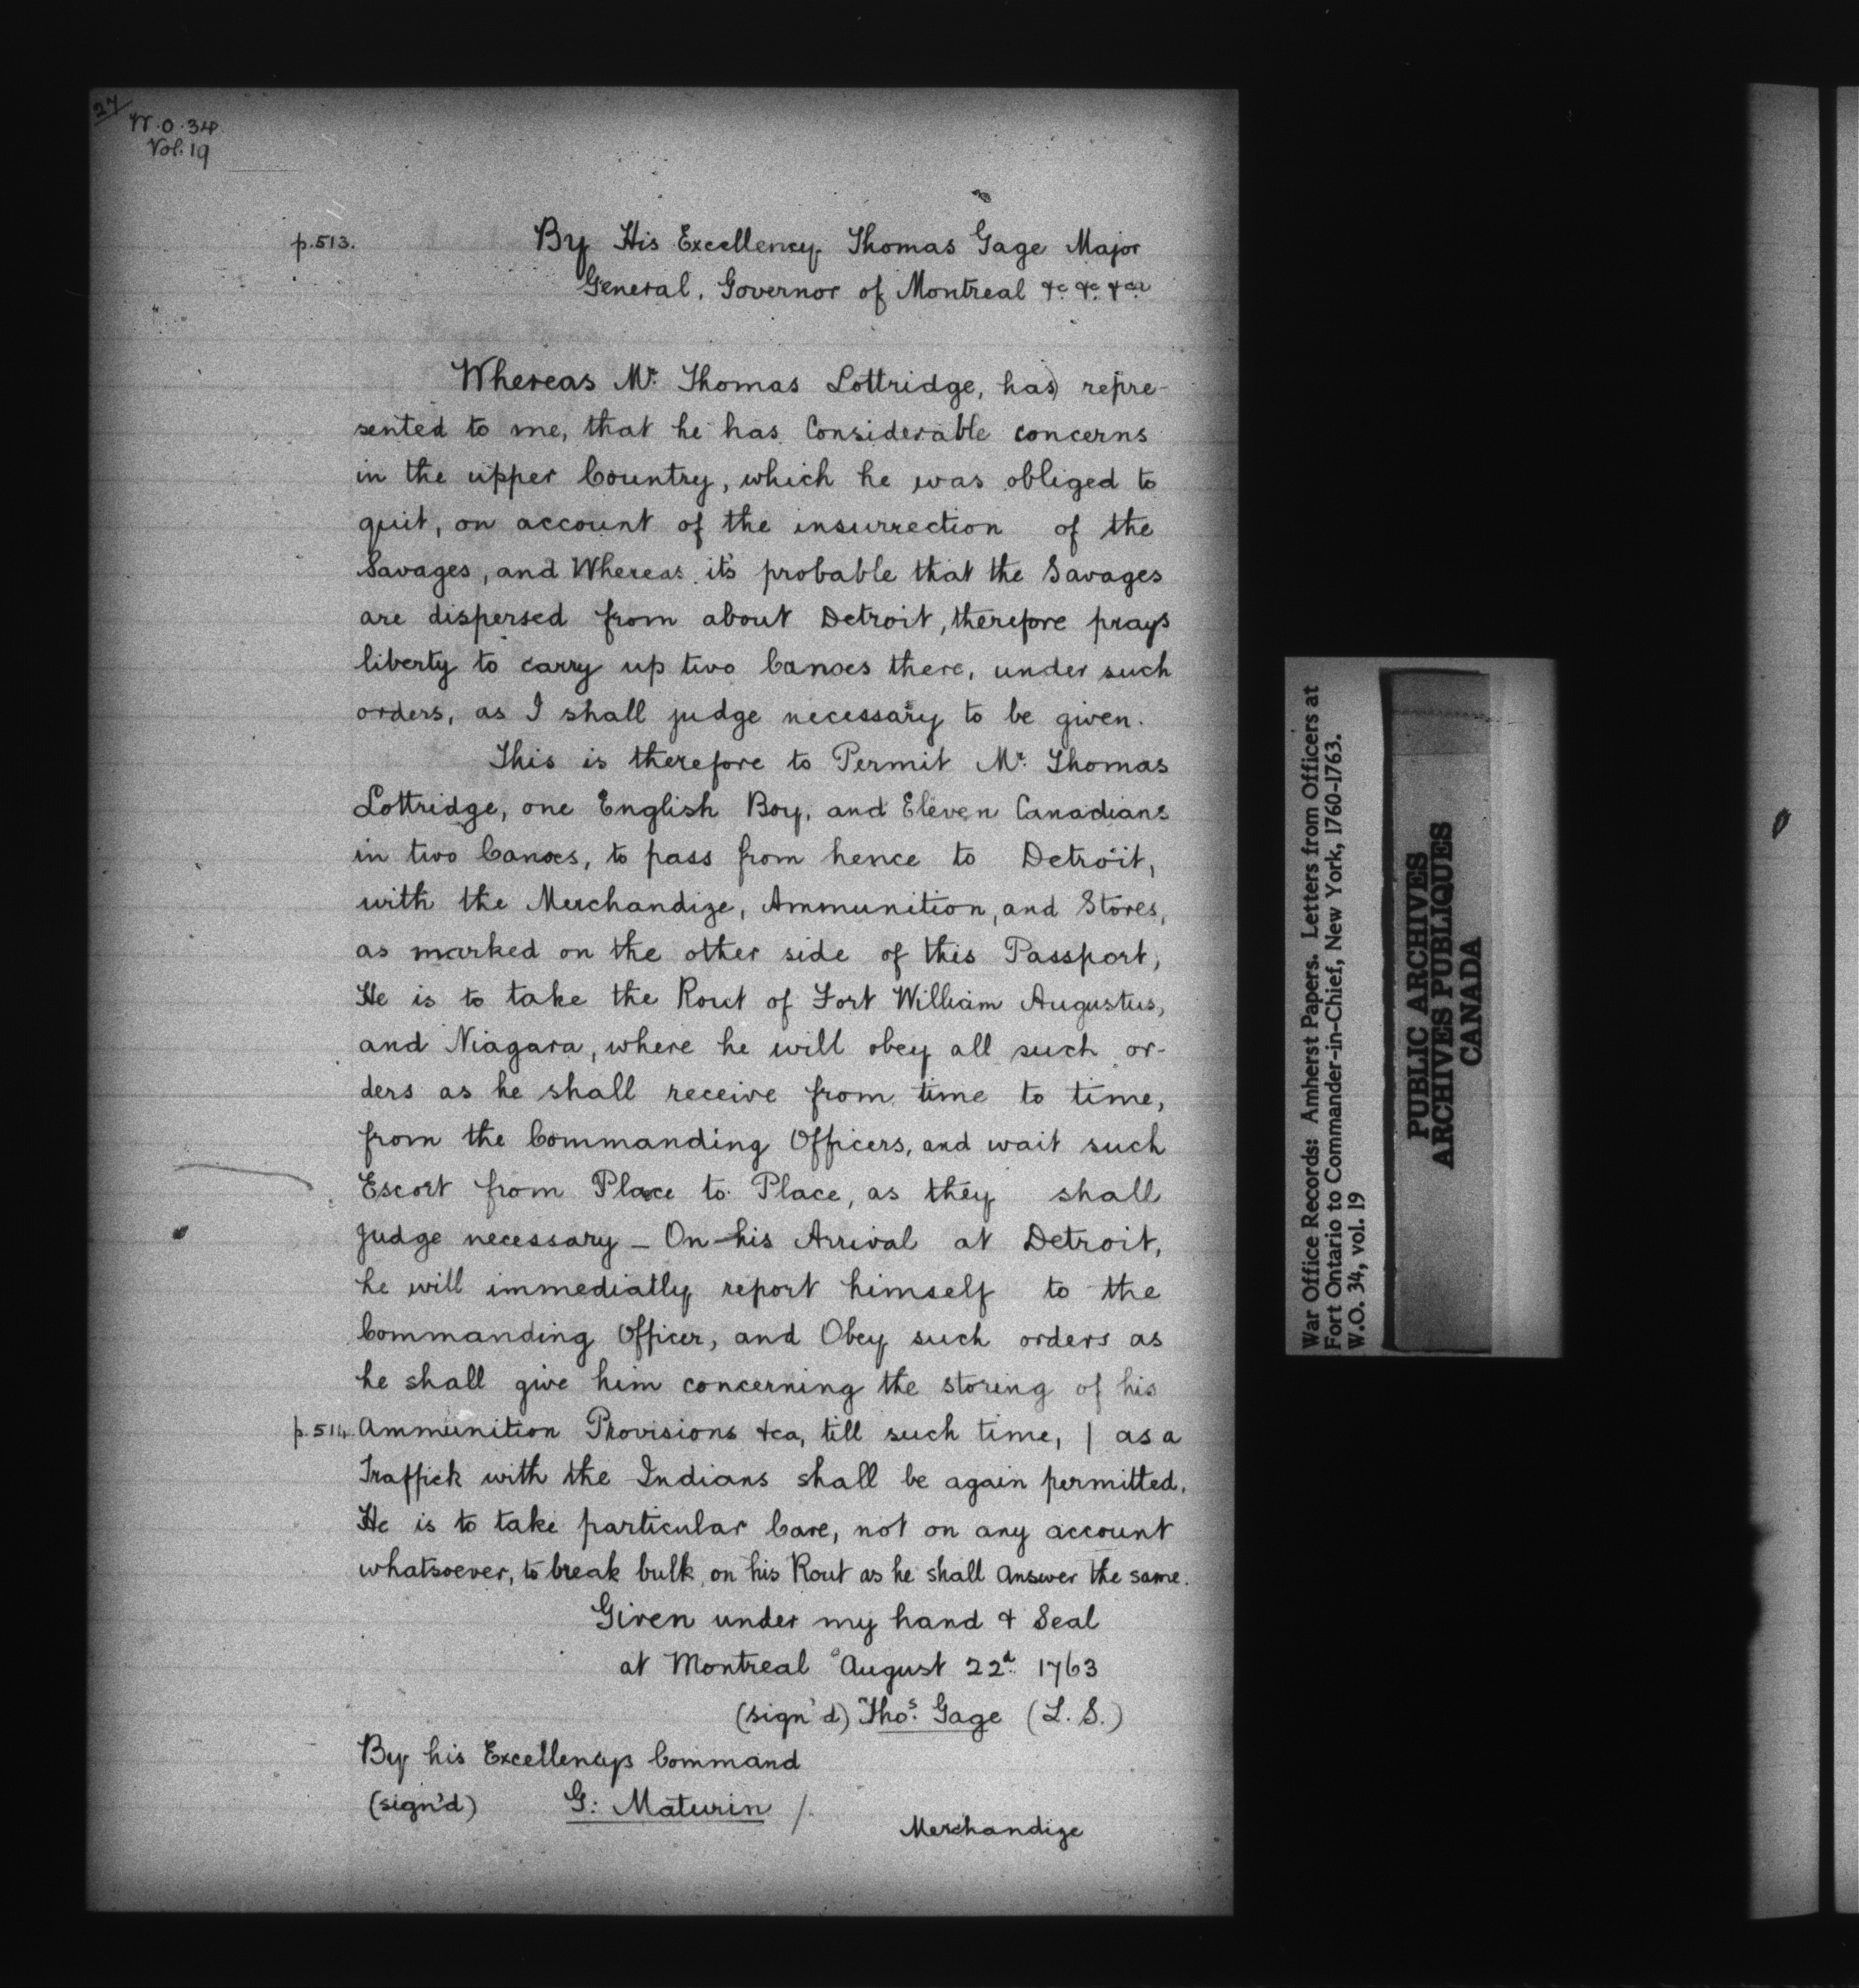 27
W.O.34
Vol.19
p.513.
By His Excellency Thomas Gage Major
General, Governor of Montreal &c &c &ca
Whereas Mr. Thomas Lottridge, has repre-
sented to me, that he has Considerable concerns
in the upper Country, which he was obliged to
quit, on account of the insurrection of the
Savages, and Whereas it's probable that the Savages
are dispersed from about Detroit, therefore prays
liberty to carry up two Canoes there, under such
orders, as I shall judge necessary to be given.
This is therefore to Permit Mr. Thomas
Lottridge, one English Boy, and Eleven Canadians
in two Canoes, to pass from hence to Detroit,
with the Merchandize, Ammunition, and Stores,
as marked on the other side of this Passport,
He is to take the Rout of Fort William Augustus,
and Niagara, where he will obey all such or-
ders as he shall receive from time to time,
from the Commanding Officers, and wait such
Escort from Place to Place, as they shall
judge necessary - On his Arrival at Detroit,
he will immediatly report himself to the
Commanding Officer, and Obey such orders as
he shall give him concerning the storing of his
p.514. Ammunition Provisions &ca, till such time, | as a
Traffick with the Indians shall be again permitted.
He is to take particular Care, not on any account
whatsoever, to break bulk, on his Rout as he shall Answer the same.
Given under my hand & Seal
at Montreal August 22d. 1763
(sign'd) Thos. Gage (L.S.)
By his Excellencys Command
(sign'd) G: Maturin /.
Merchandize
War Office Records: Amherst Papers. Letters from Officers at
Fort Ontario to Commander-in-Chief, New York, 1760-1763.
W.O. 34, vol. 19
PUBLIC ARCHIVES
ARCHIVES PUBLIQUES
CANADA